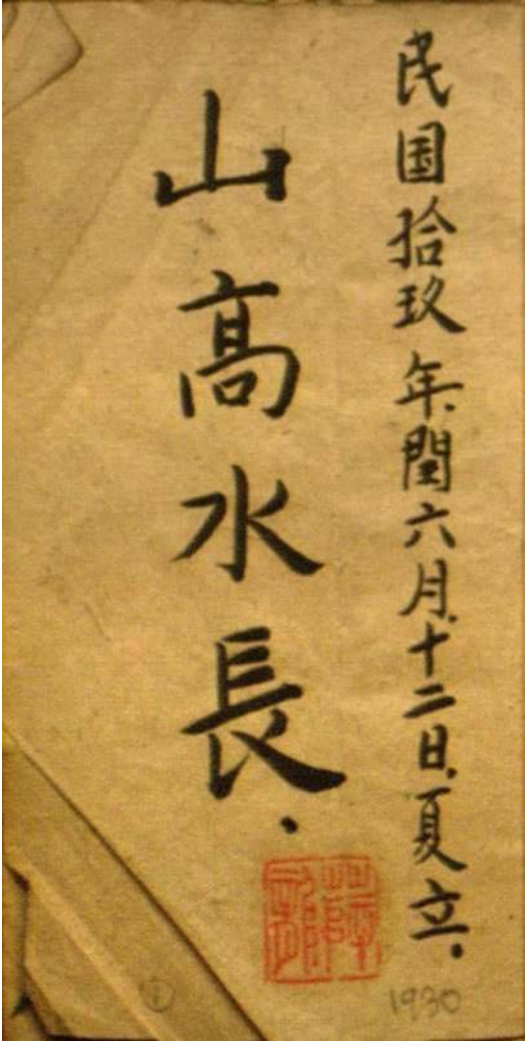 民国拾玖年閏六月十二日夏立.
山髙水長.
1930
①